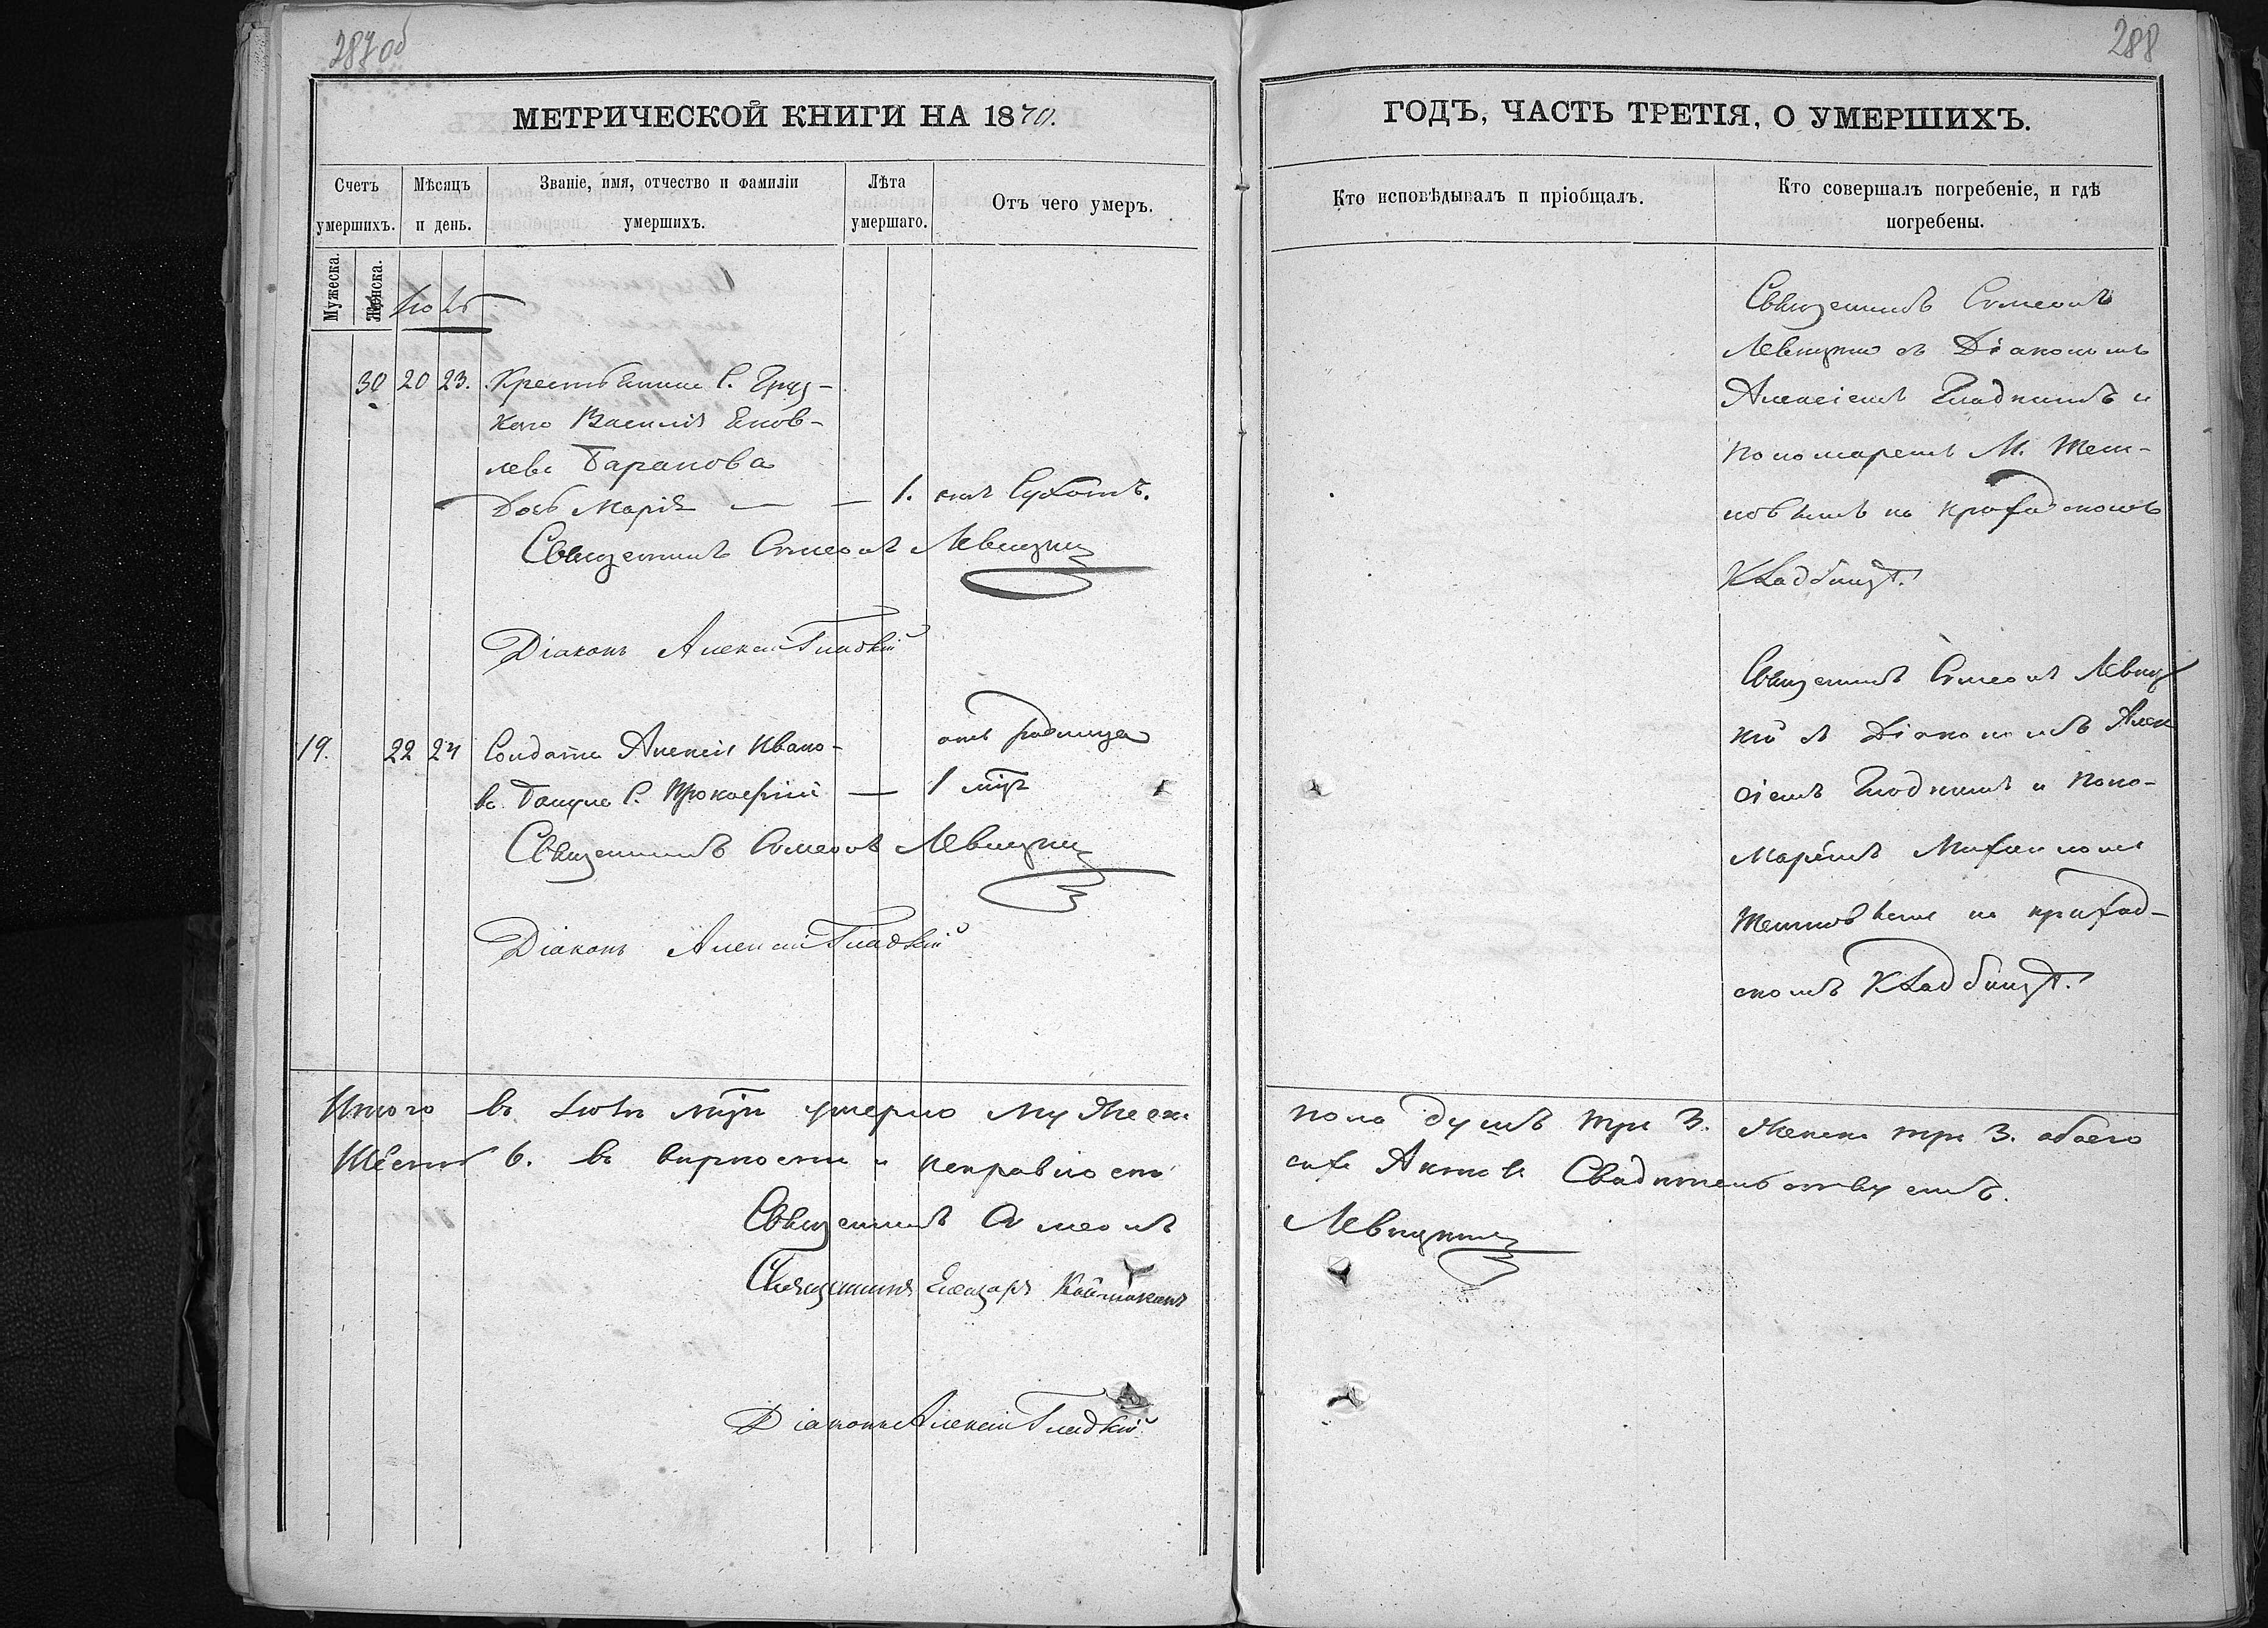 287об
МЕТРИЧЕСКОЙ КНИГИ НА 1870.
Счетъ умершихъ.
Мѣсяцъ и день.
Званіе, имя, отчество и фамиліи умершихъ.
Лѣта умершаго.
Отъ чего умеръ.
Мужеска.
Женска.
30 20 23. Крестьянина С. Груз-
кого Василія Яков-
лева Баранова
Дочь Марія — — 1. отъ Сухотъ.
Священникъ Симеонъ Левицкій
Діаконъ Алексій Гладкій
19. 22 24 Солдата Алексія Ивано-
отъ родимца
С. Прокофій — 1 мць
Священникъ Симеонъ Левицкій
Діаконъ Алексій Гладкій
Итого въ мцѣ умерло Мужеск
Шесть 6. въ вѣрности и исправности
Священникъ Симеонъ
Священникъ
Діаконъ Алексій Гладкій
288
ГОДЪ, ЧАСТЬ ТРЕТІЯ, О УМЕРШИХЪ.
Кто исповѣдывалъ и пріобщалъ.
Кто совершалъ погребеніе, и гдѣ погребены.
Священникъ Симеонъ
Левицкій съ Діакономъ
Алексіемъ Гладкимъ и
Пономаремъ М.
на приходскомъ
Кладбищѣ.
Священникъ Симеонъ Левиц
кій съ Діакономъ Алек
сіемъ Гладкимъ и Поно-
маремъ Михаиломъ
на приход-
скомъ Кладбищѣ.
пола душъ три 3. женска три 3. обоего
сихъ Актовъ Свидѣтельствуемъ.
Левицкій